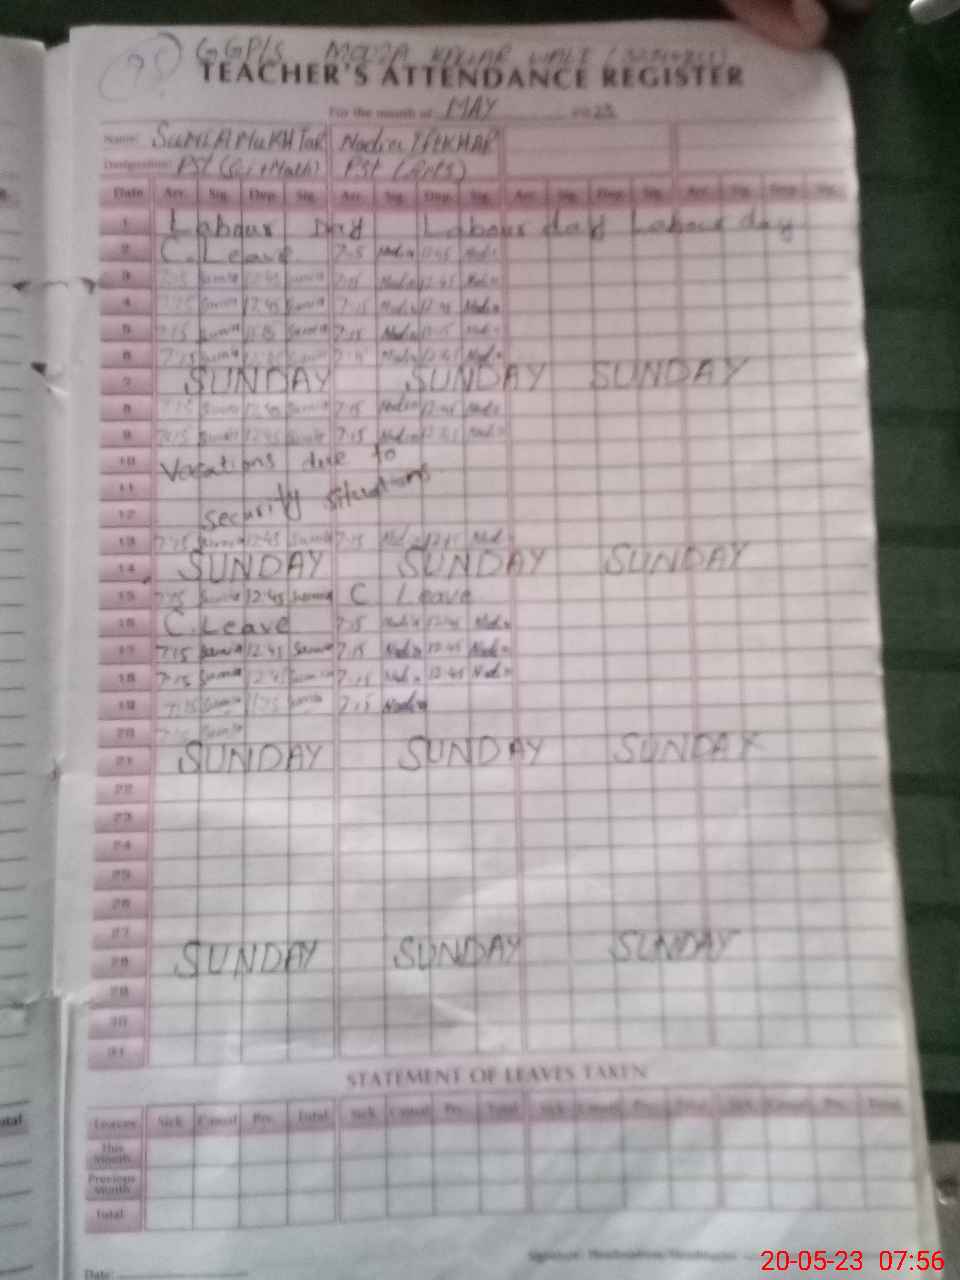 GGP/S MOUZA
TEACHER'S ATTENDANCE REGISTER
For the month of MAY 2023
Name: SUMIA MUKHTAR Nadia IFTKHAR
Designation: PST (Sci+Math) PST (Arts)
Date Arr. Sig. Dep. Sig. Arr. Sig. Dep. Sig. Arr. Sig. Dep. Sig. Arr. Sig. Dep. Sig.
1 Labour Day Labour day Labour day
2 C. Leave 7:15 Nadia 12:45 Nadia
3 7:15 Sumia 12:45 Sumia 7:15 Nadia 12:45 Nadia
4 7:15 Sumia 12:45 Sumia 7:15 Nadia 12:45 Nadia
5 7:15 Sumia Sumia 7:15 Nadia Nadia
6 7:15 Sumia Sumia 7:15 Nadia 12:45 Nadia
7 SUNDAY SUNDAY SUNDAY
8 7:15 Sumia 12:45 Sumia 7:15 Nadia 12:45 Nadia
9 7:15 Sumia 12:45 Sumia 7:15 Nadia 12:45 Nadia
10 Vacations due to
11
12 security situations
13 7:15 Sumia 12:45 Sumia 7:15 Nadia 12:45 Nadia
14 SUNDAY SUNDAY SUNDAY
15 7:15 Sumia 12:45 Sumia C Leave
16 C. Leave 7:15 Nadia 12:45 Nadia
17 7:15 Sumia 12:45 Sumia 7:15 Nadia 12:45 Nadia
18 7:15 Sumia 12:45 Sumia 7:15 Nadia 12:45 Nadia
19 7:15 Sumia Sumia 7:15 Nadia
20 7:15 Sumia
21 SUNDAY SUNDAY SUNDAY
22
23
24
25
26
27
28 SUNDAY SUNDAY SUNDAY
29
30
31
STATEMENT OF LEAVES TAKEN
Leaves Sick Casual Prv. Total Sick Casual Prv. Total Sick Casual Prv. Total Sick Casual Prv. Total
This Month
Previous Month
Total
Signature
Date:
20-05-23 07:56